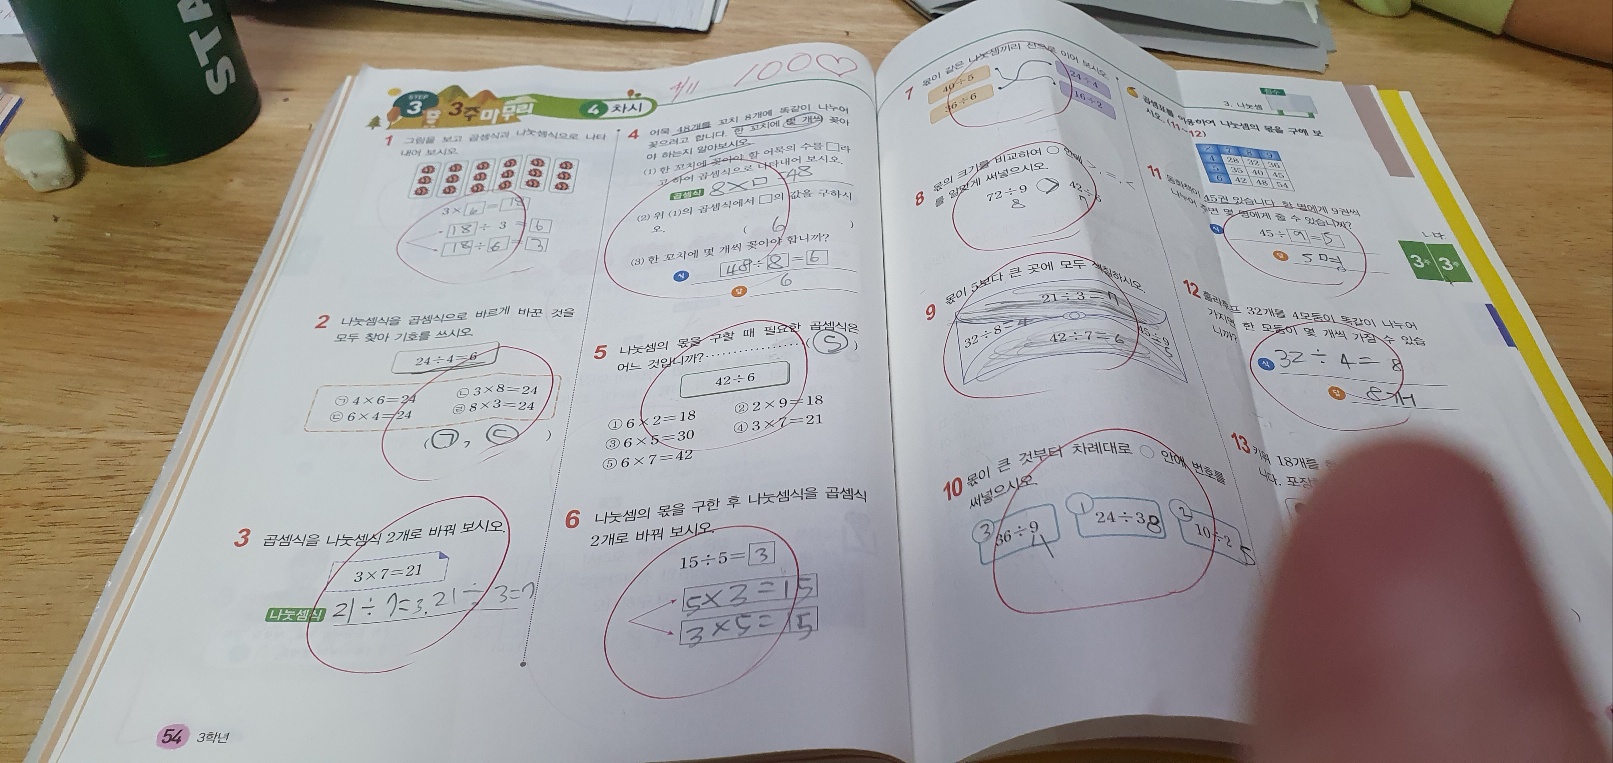 STA
4/11 100♡
STEP 3 3주 마무리 4 차시
1 그림을 보고 곱셈식과 나눗셈식으로 나타
내어 보시오.
3×6=18
18÷3=6
18÷6=3
2 나눗셈식을 곱셈식으로 바르게 바꾼 것을
모두 찾아 기호를 쓰시오.
24÷4=6
㉠ 4×6=24 ㉡ 3×8=24
㉢ 6×4=24 ㉣ 8×3=24
(㉠, ㉢)
3 곱셈식을 나눗셈식 2개로 바꿔 보시오.
3×7=21
나눗셈식 21÷7=3, 21÷3=7
54 3학년
4 어묵 48개를 꼬치 8개에 똑같이 나누어
꽂으려고 합니다. 한 꼬치에 몇 개씩 꽂아
야 하는지 알아보시오.
(1) 한 꼬치에 꽂아야 할 어묵의 수를 □라
고 하여 곱셈식으로 나타내어 보시오.
곱셈식 8×□=48
(2) 위 (1)의 곱셈식에서 □의 값을 구하시
오.
( 6 )
(3) 한 꼬치에 몇 개씩 꽂아야 합니까?
식 48÷8=6
답 6
5 나눗셈의 몫을 구할 때 필요한 곱셈식은
어느 것입니까? ( 5 )
42÷6
① 6×2=18 ② 2×9=18
③ 6×5=30 ④ 3×7=21
⑤ 6×7=42
6 나눗셈의 몫을 구한 후 나눗셈식을 곱셈식
2개로 바꿔 보시오.
15÷5=3
5×3=15
3×5=15
7 몫이 같은 나눗셈끼리 선으로 이어 보시오.
40÷5 24÷4
36÷6 16÷2
8 몫의 크기를 비교하여 ○ 안에 >, =, <
를 알맞게 써넣으시오.
72÷9 > 42÷6
8 7
9 몫이 5보다 큰 곳에 모두 색칠하시오.
21÷3=7
32÷8=4 45÷9
42÷7=6 5
10 몫이 큰 것부터 차례대로 ○ 안에 번호를
써넣으시오.
3 36÷9 4 1 24÷3 8 2 10÷2 5
3. 나눗셈
곱셈표를 이용하여 나눗셈의 몫을 구해 보
시오. (11~12)
7 8 9
4 28 32 36
5 35 40 45
6 42 48 54
11
45권 있습니다. 한 명에게 9권씩
몇 명에게 줄 수 있습니까?
식 45÷9=5
답 5명
12 32개를 4모둠이 똑같이 나누어
한 모둠이 몇 개씩 가질 수 있습
니까?
식 32÷4=8
답 8개
13 18개를
니다. 포장